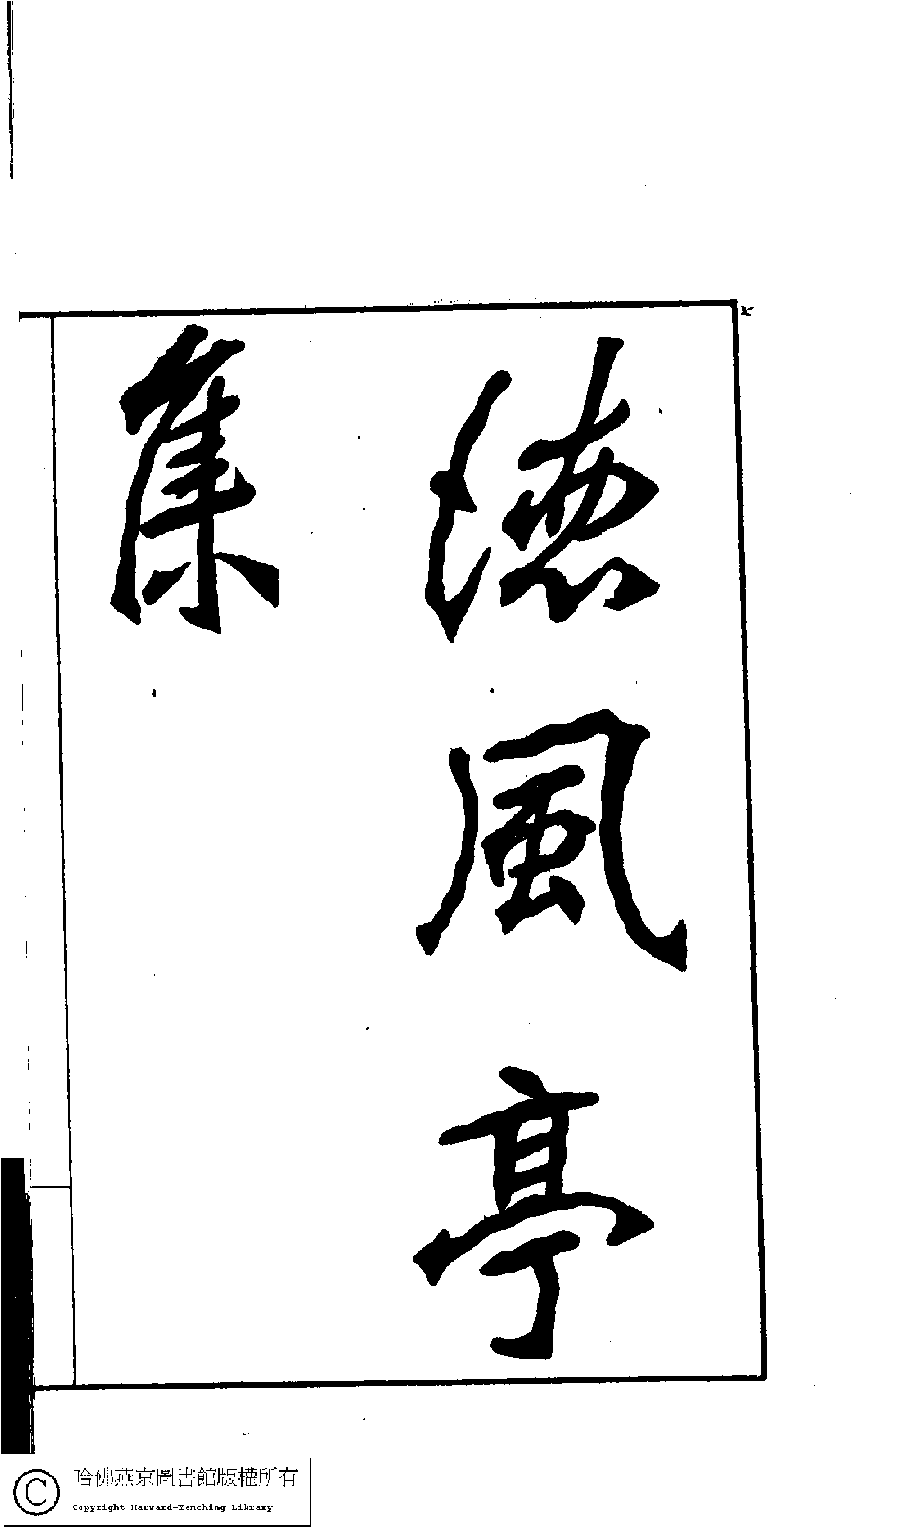 德風亭
集
哈佛燕京圖書館版權所有
Copyright Harvard-Yenching Library